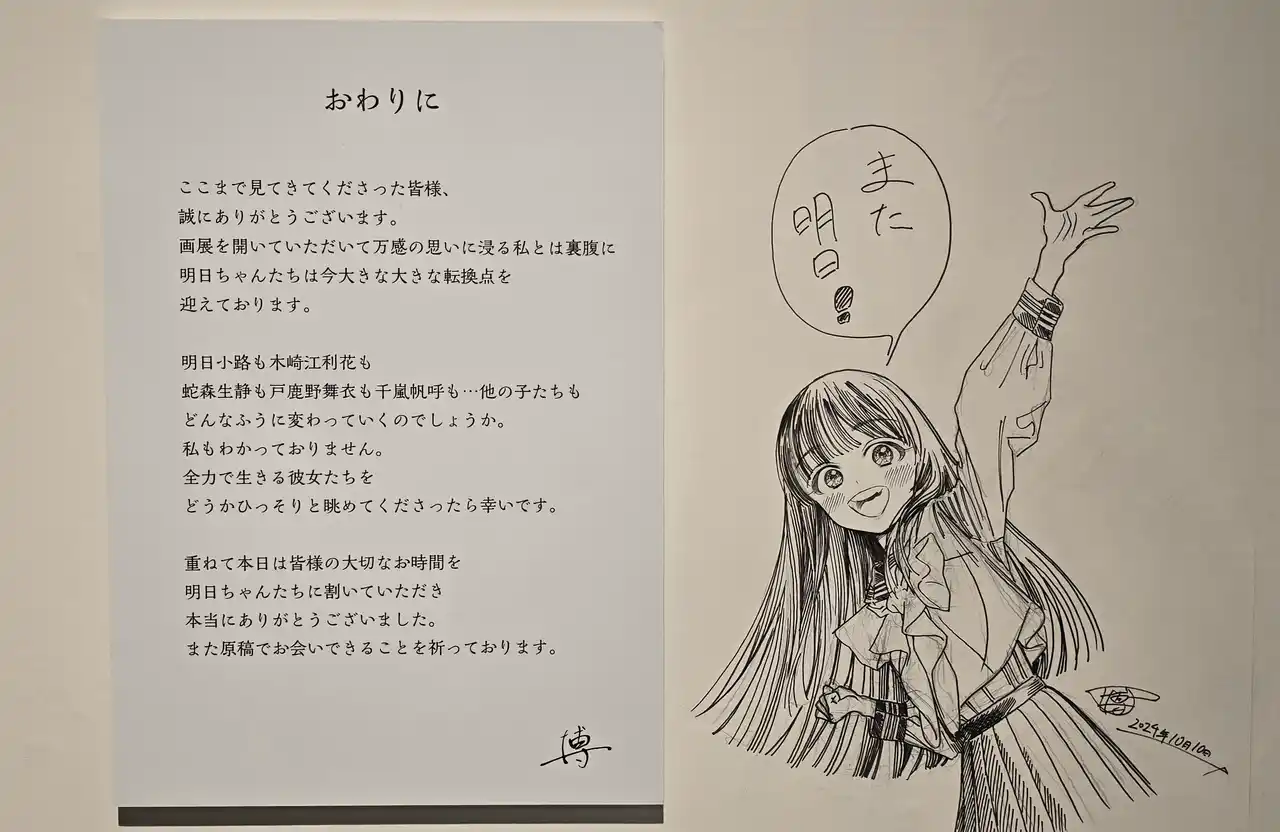 おわりに
ここまで見てきてくださった皆様、
誠にありがとうございます。
画展を開いていただいて万感の思いに浸る私とは裏腹に
明日ちゃんたちは今大きな大きな転換点を
迎えております。
明日小路も木崎江利花も
蛇森生静も戸鹿野舞衣も千嵐帆呼も…他の子たちも
どんなふうに変わっていくのでしょうか。
私もわかっておりません。
全力で生きる彼女たちを
どうかひっそりと眺めてくださったら幸いです。
重ねて本日は皆様の大切なお時間を
明日ちゃんたちに割いていただき
本当にありがとうございました。
また原稿でお会いできることを祈っております。
博
また
明日!
博
2024年10月10日